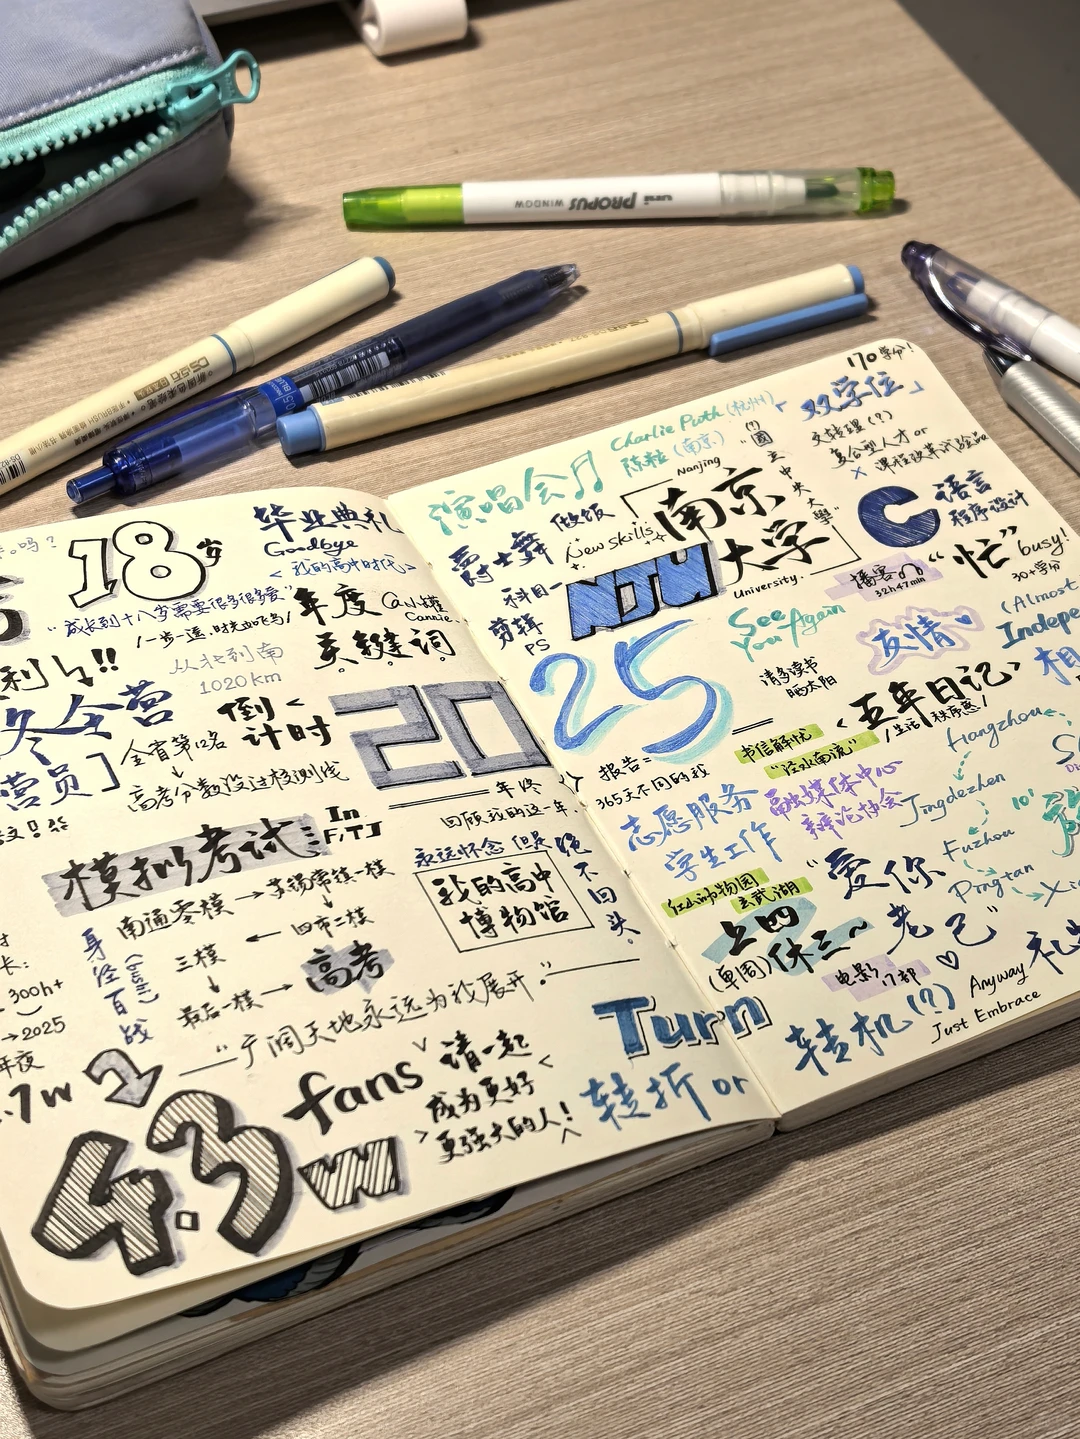 uni PROPUS WINDOW
吗?
18岁
毕业典礼
Goodbye
<我的高中时代>
"成长到十八岁需要很多很多爱"
/一步一遥,时光如飞鸟/
年度
关键词
从北到南
1020km
利 !!
冬令营
营员]
倒计时
全省第12名
高考分数没过核测线
20
年终
回顾我的这一年
模拟考试
In
F,TJ
南通零模
苏锡常镇一模
四市二模
三模
最后一模
高考
身经百战
(bushi)
永远怀念 但是
绝不回头。
我的高中
博物馆
"广阔天地永远为我展开。"
300h+
→2025
年夜
.7w
4.3w
fans
请一起
成为更好
更强大的人!
Turn
转折 or
转机(?)
170学分!
「双学位」
文转理(?)
复合型人才 or
× 课程改革试验品
Charlie Puth (杭州)
陈粒(南京)
演唱会
做饭
爵士舞
New skills
科目一
剪辑
PS
Nanjing
南京
大学
University.
"(?)國立中央大學"
NJU
C
语言
程序设计
播客
32h47min
"忙"
busy!
30+学分
See
You Again
友情
(Almost
Indepe
25
请多读书
晒太阳
<五年日记>
/生活秩序感/
报告=
365天不同的我
书信解忧
志愿服务
学生工作
融媒体中心
辩论协会
Hangzhou
Jingdezhen
Fuzhou
Pingtan
10'
红山动物园
玄武湖
"爱你
老己"
上四
休三~
(单周)
电影
17部
Anyway
Just Embrace